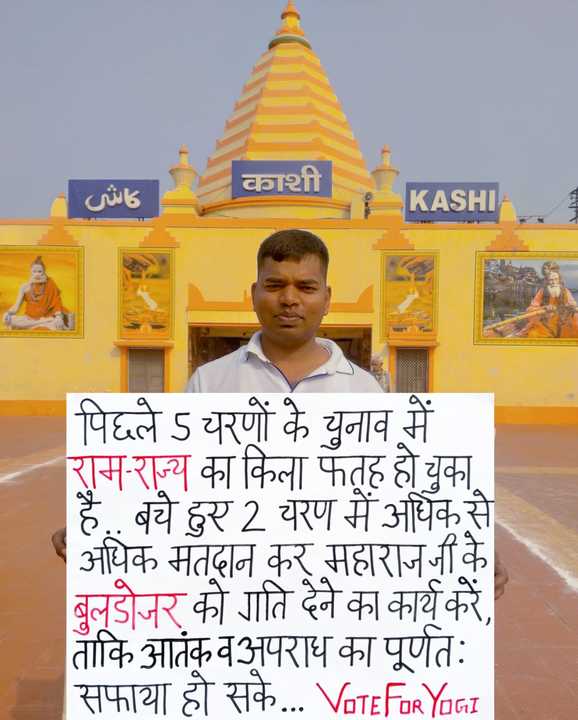 کاشی
काशी
KASHI
पिछले 5 चरणों के चुनाव में
राम-राज्य का किला फतह हो चुका
है.. बचे हुए 2 चरण में अधिक से
अधिक मतदान कर महाराज जी के
बुलडोजर को गति देने का कार्य करें,
ताकि आतंक व अपराध का पूर्णत:
सफाया हो सके... VOTE FOR YOGI